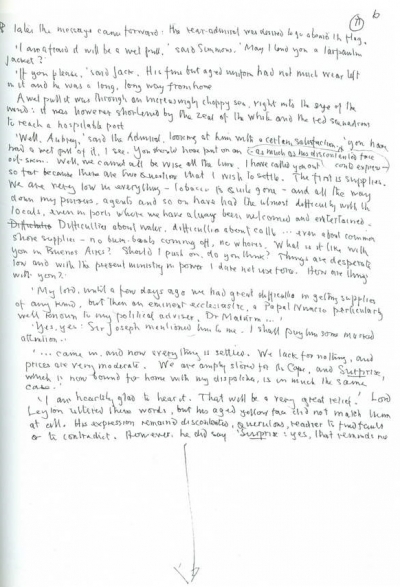 (11 6
later the message came forward: the rear-admiral was desired to go aboard the flag.
'I am afraid it will be a wet pull,' said Simmons. 'May I lend you a tarpaulin
jacket?'
'If you please,' said Jack. His fine but aged uniform had not much wear left
in it and he was a long, long way from home
A wet pull it was through an increasingly choppy sea, right into the eye of the
wind: it was however shortened by the zeal of the white and the red squadrons
to reach a hospitable port
'Well, Aubrey,' said the Admiral, looking at him with a certain satisfaction, 'you have
had a wet pull of it, I see. You should have put on an (as much as his discontented face
oil-skin. Well, we cannot all be wise all the time. I have called you out could express -
so far because there are two questions that I wish to settle. The first is supplies.
We are very low in everything - tobacco is quite gone - and all the way
down my pursers, agents and so on have had the utmost difficulty with the
locals, even in ports where we have always been welcomed and entertained -
Difficulties Difficulties about water, difficulties about coal ... even about common
shore supplies - no bum-boats coming off, no whores. What is it like with
you in Buenos Aires? Should I push on, do you think? Things are desperate
low and with the present ministry in power I dare not use force. How are things
with you?'
'My lord, until a few days ago we had great difficulties in getting supplies
of any kind, but then an eminent ecclesiastic, a Papal Nuncio particularly
well known to my political adviser, Dr Maturin ...'
'Yes, yes: Sir Joseph mentioned him to me. I shall pay him some marked
attention ..'
'... came in, and now everything is settled. We lack for nothing, and
prices are very moderate. We are amply stored to the Cape, and Surprise,
which is now bound for home with my dispatches, is in much the same
case.'
'I am heartily glad to hear it. That will be a very great relief.' Lord
Leyton uttered these words, but his aged yellow face did not match them
at all. His expression remained discontented, querulous, readier to find fault
or to contradict. However he did say 'Surprise: yes, that reminds me